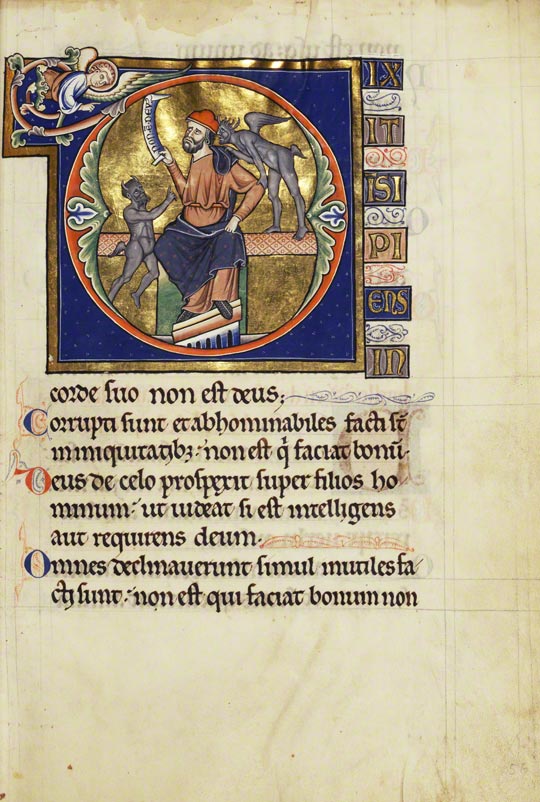 D
IX
IT
ISI
PI
ENS
IN
corde suo non est deus;
Corrupti sunt et abhominabiles facti st̄
in iniquitatibꝫ: non est q̇ faciat bonū.
Deus de celo prospexit super filios ho-
minum: ut uideat si est intelligens
aut requirens deum.
Omnes declinauerunt simul inutiles fa-
cti sunt: non est qui faciat bonum non